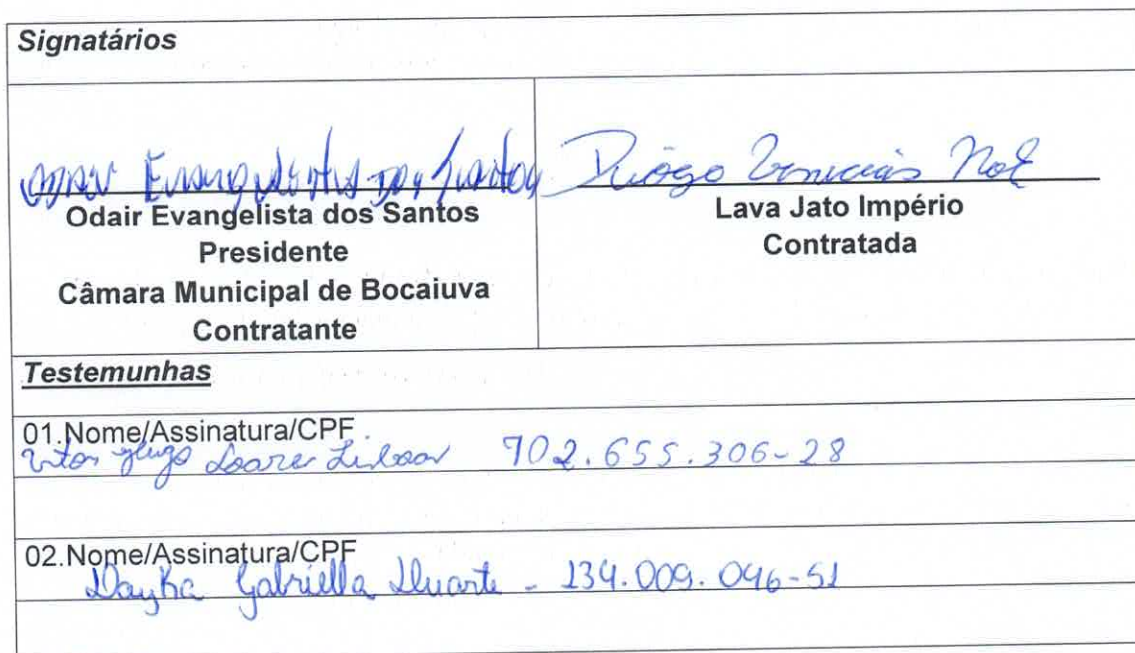 Signatários
Odair Evangelista dos Santos Diogo Vinicius
Odair Evangelista dos Santos
Presidente
Câmara Municipal de Bocaiuva
Contratante
Lava Jato Império
Contratada
Testemunhas
01.Nome/Assinatura/CPF
Vitor Hugo Soares Lisboa 702.655.306-28
02.Nome/Assinatura/CPF
Dayka Gabriella Duarte - 134.009.046-51